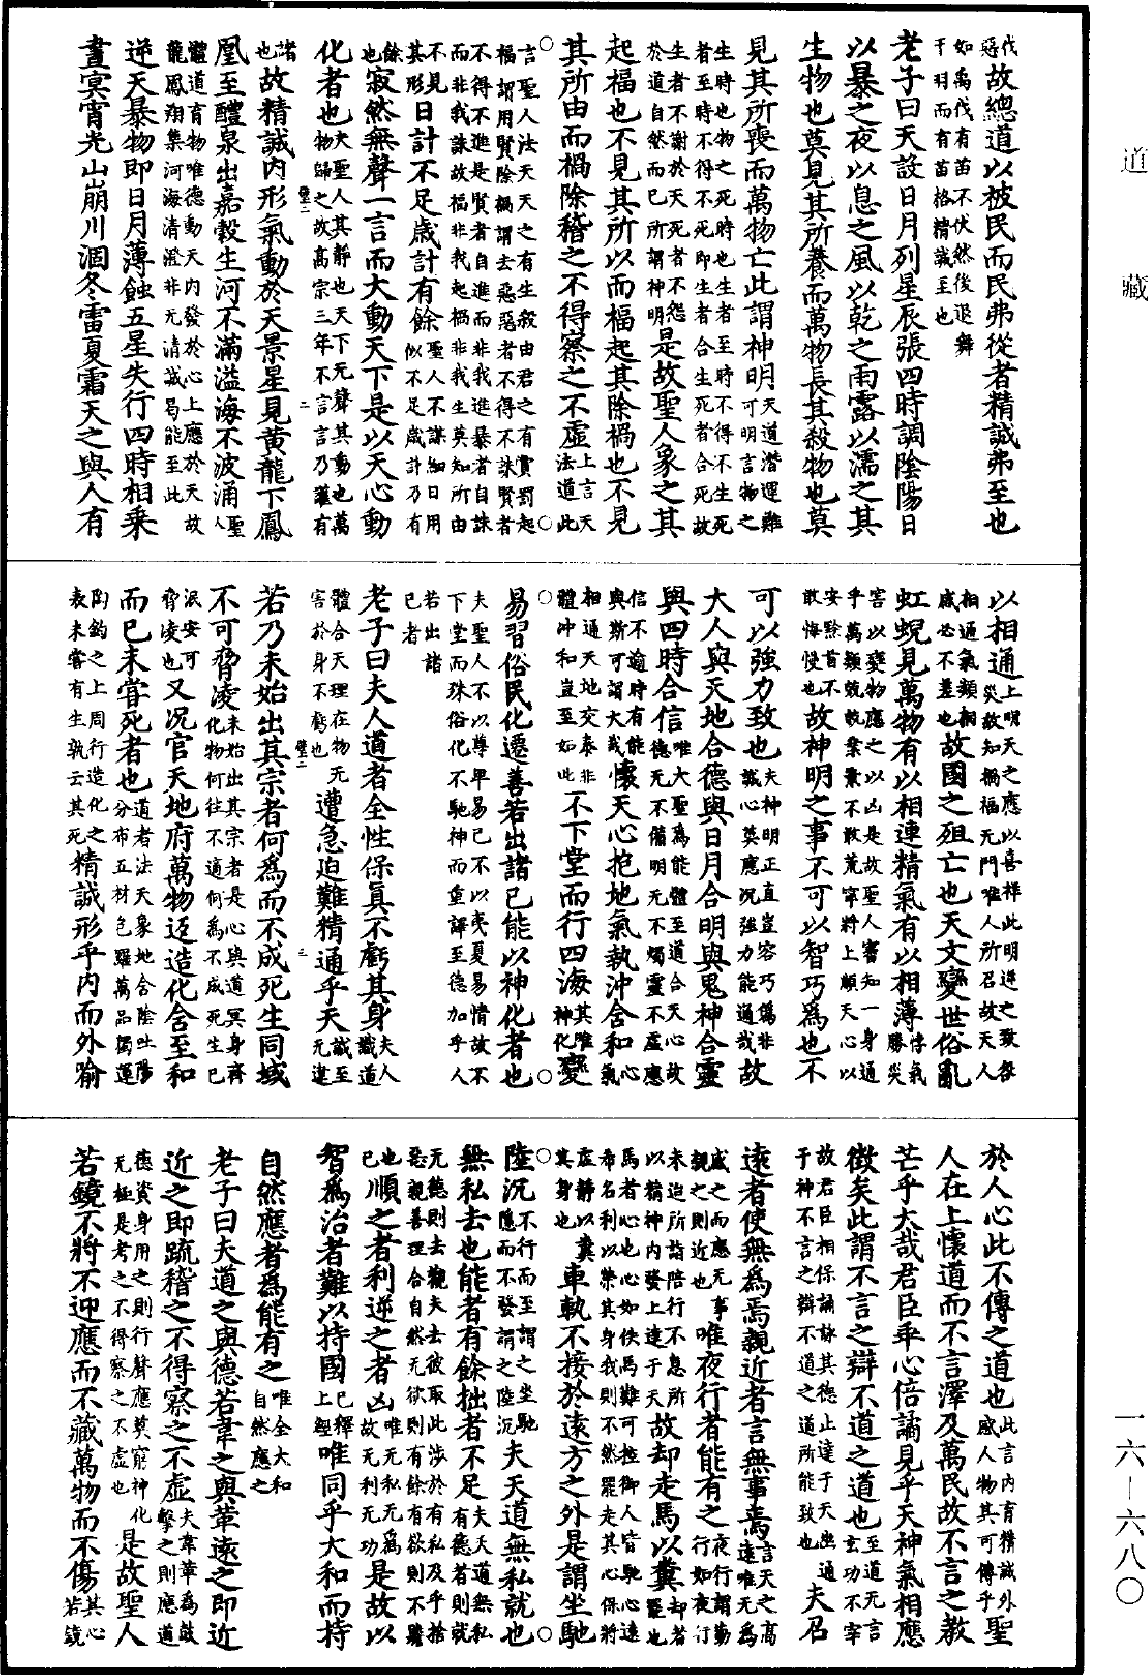 道藏
伐惡故總道以被民而民弗從者精誠弗至也
如禹伐有苗不伏然後退舞干羽而有苗格精誠至也
老子曰天設日月列星辰張四時調陰陽日
以暴之夜以息之風以乾之雨露以濡之其
生物也莫見其所養而萬物長其殺物也莫
見其所喪而萬物亡此謂神明天道潛運難可明言物之
生時也物之死時也生者至時不得不生死者至時不得不死即生者合生死者合死故
生者不謝於天死者不怨於道自然而已所謂神明是故聖人象之其
起福也不見其所以而福起其除禍也不見
其所由而禍除稽之不得察之不虛上言天法道此
言聖人法天天之有生殺由君之有賞罰起福謂用賢除禍謂去惡惡者不得不誅賢者
不得不進是賢者自進而非我進暴者自誅而非我誅故福非我起禍非我生莫知所由
不見其形日計不足歲計有餘聖人不謀細日用似不足歲計乃有
餘也寂然無聲一言而大動天下是以天心動
化者也夫聖人其靜也天下无聲其動也萬物歸之故高宗三年不言言乃雍有
諸也故精誠內形氣動於天景星見黃龍下鳳
凰至醴泉出嘉穀生河不滿溢海不波涌聖人
體道育物唯德動天內發於心上應於天故龍鳳翔集河海清澄非无清誠曷能至此
逆天暴物即日月薄蝕五星失行四時相乘
晝冥宵光山崩川涸冬雷夏霜天之與人有
以相通上明天之應以喜祥此明逆之致咎災故知禍福无門唯人所召故天人
相通氣類相感必不差也故國之殂亡也天文變世俗亂
虹蜺見萬物有以相連精氣有以相薄悖氣勝災
害以變物應之以凶是故聖人審知一身通乎萬類兢兢業業不敢荒寧將上順天心以
安黔首不敢悔慢也故神明之事不可以智巧為也不
可以強力致也夫神明正直豈容巧偽非誠心莫應沉強力能通哉故
大人與天地合德與日月合明與鬼神合靈
與四時合信唯大聖為能體至道合天心故德无不備明无不燭靈不虛應
信不逾時有能與斯可謂大哉懷天心抱地氣執沖含和心氣
相通天地交泰非體沖和豈至如此不下堂而行四海其唯神化變
易習俗民化遷善若出諸己能以神化者也
夫聖人不以尊卑易己不以夷夏易情故不下堂而殊俗化不馳神而重譯至德加乎人
若出諸己者
老子曰夫人道者全性保真不虧其身夫人識道
體合天理在物无害於身不虧也遭急迫難精通乎天誠至无違
若乃未始出其宗者何為而不成死生同域
不可脅凌未始出其宗者是心與道冥身齊化物何往不適何為不成死生已
泯安可脅凌也又況官天地府萬物返造化含至和
而已未嘗死者也道者法天象地含陰吐陽分布五材包羅萬品獨運
陶鈞之上周行造化之表未嘗有生孰云其死精誠形乎內而外喻
於人心此不傳之道也此言內育精誠外感人物其可傳乎聖
人在上懷道而不言澤及萬民故不言之教
芒乎大哉君臣乖心倍譎見乎天神氣相應
徵矣此謂不言之辯不道之道也至道无言玄功不宰
故君臣相保誦詠其德止達于天幽通于神不言之辯不道之道所能致也夫召
遠者使無為焉親近者言無事焉言天之高遠唯无為
感之而應无事親之則近也唯夜行者能有之夜行謂勤行如夜行
未迨所詣陪行不息所以精神內發上達于天故却走馬以糞却者罷也
馬者心也心如佚馬難可極御人皆馳心遠希名利以榮其身我則不然罷走其心保將
虛靜以糞其身也車軌不接於遠方之外是謂坐馳
陸沉不行而至謂之坐馳隱而不發謂之陸沉夫天道無私就也
無私去也能者有餘拙者不足夫天道無私有德者則就
无德則去觀夫去彼取此涉於有私及乎捨惡親善理合自然无欲則有餘有欲則不贍
也順之者利逆之者凶唯无私无為故无利无功是故以
智為治者難以持國已釋上經唯同乎大和而持
自然應者為能有之唯全大和自然應之
老子曰夫道之與德若韋之與革遠之即近
近之即疏稽之不得察之不虛夫韋革為鼓擊之則應道
德資身用之則行聲應莫窮神化无極是考之不得察之不虛也是故聖人
若鏡不將不迎應而不藏萬物而不傷其心若鏡
一六—六八〇